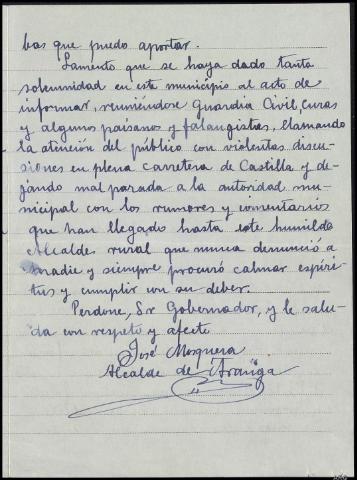 bas que puedo aportar.
Lamento que se haya dado tanta
solemnidad en este municipio al acto de
informar, reuniéndose Guardia Civil, curas
y algunos paisanos y falangistas, llamando
la atención del público con violentas discu-
siones en plena carretera de Castilla y de-
jando mal parada a la autoridad mu-
nicipal con los rumores y comentarios
que han llegado hasta este humilde
Alcalde rural que nunca denunció a
nadie y siempre procuró calmar espíri-
tus y cumplir con su deber.
Perdone, Sr Gobernador, y le salu-
da con respeto y afecto
José Mosquera
Alcalde de Aranga